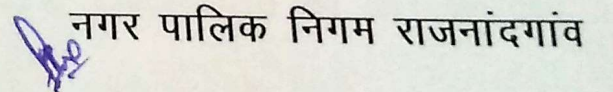 नगर पालिक निगम राजनांदगांव